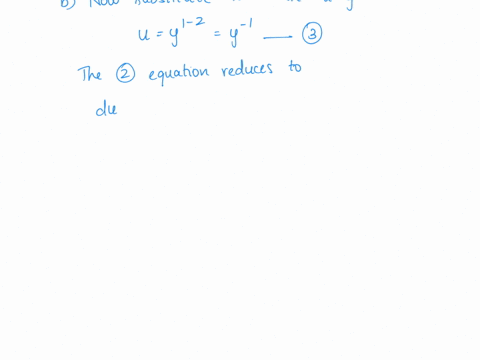 b) Now substitute
u = y^{1-2} = y^{-1} —— ③
The ② equation reduces to
du